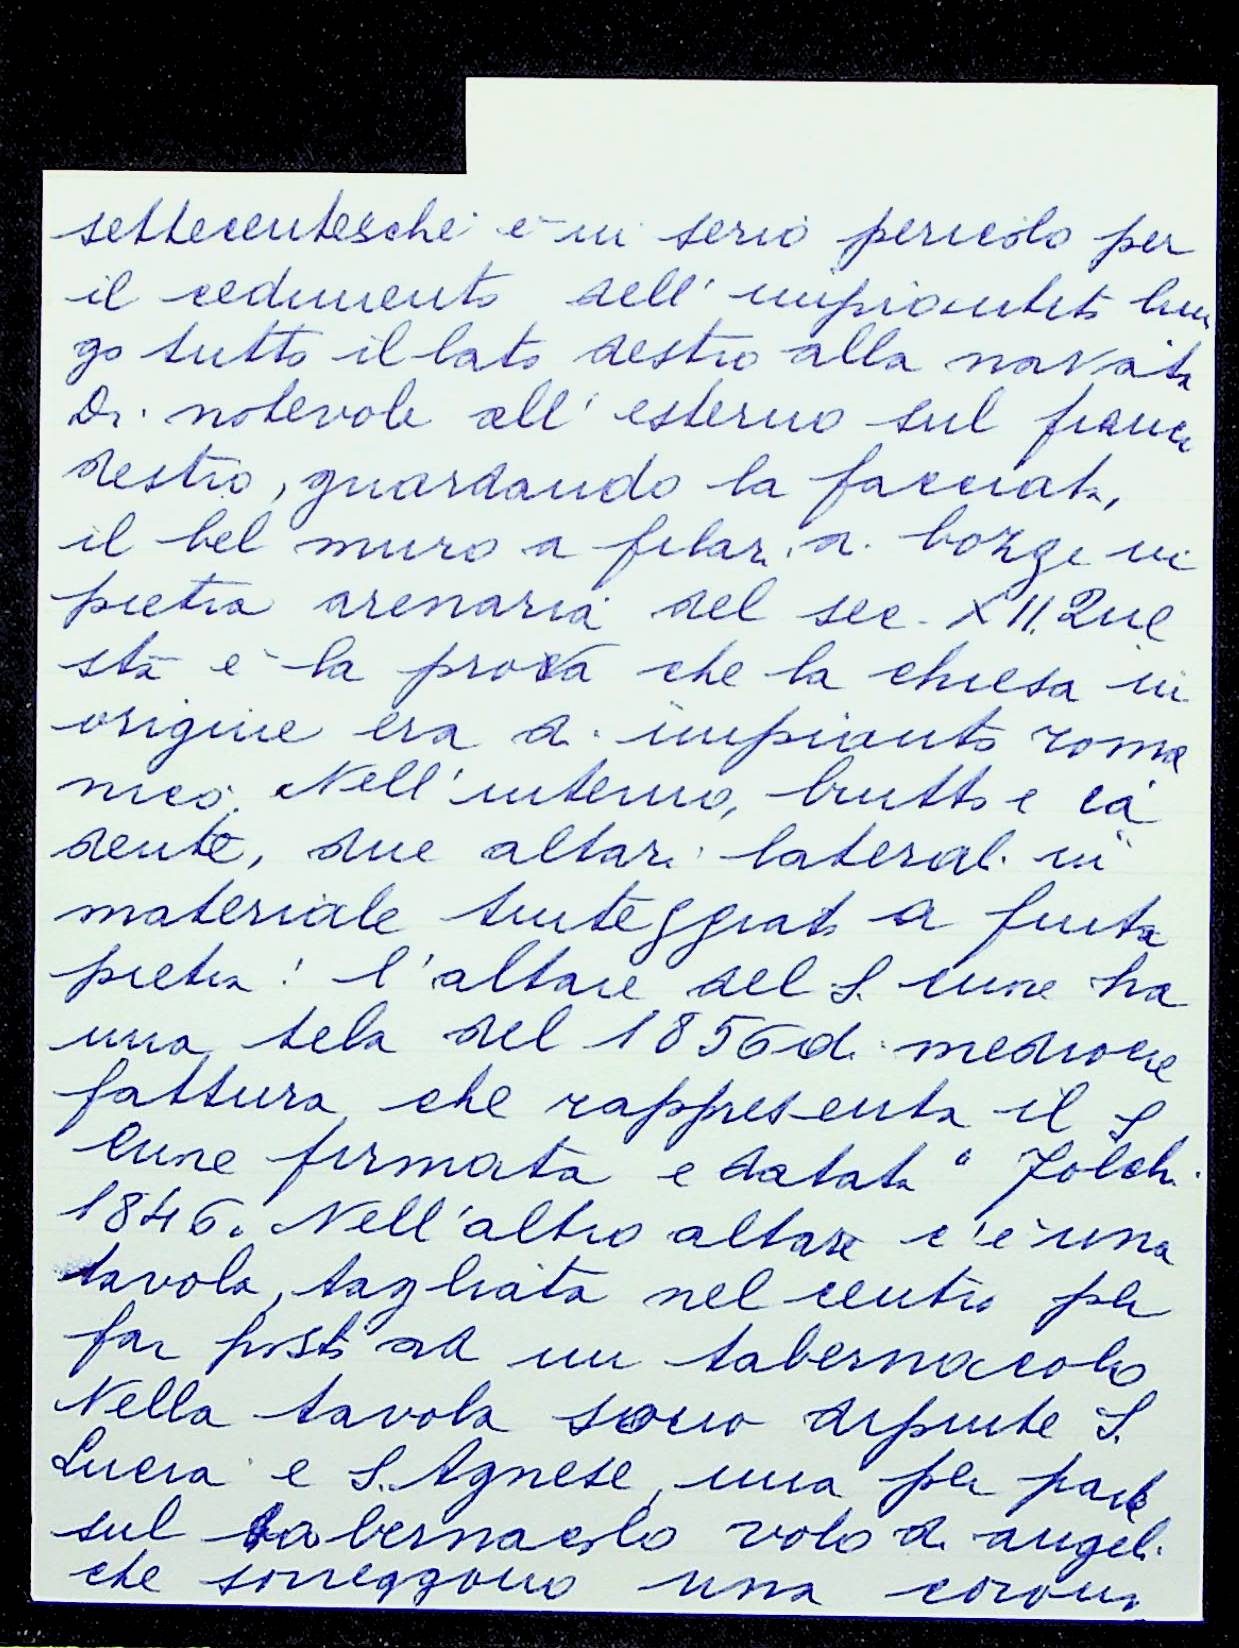 settecentesche è in serio pericolo per
il cedimento dell' impiantito lun
go tutto il lato destro alla navata
Di notevole all' esterno sul fianco
destro, guardando la facciata,
il bel muro a filari a bozze in
pietra arenaria del sec. XII. Que
sta è la prova che la chiesa in
origine era di impianto roma
nico. Nell'interno, brutto e ca
dente, due altari laterali in
materiale tinteggiato a finta
pietra: l'altare del S. Cuore ha
una tela del 1856 di mediocre
fattura che rappresenta il S
Cuore firmata e datata "
1846. Nell'altro altare c'è una
tavola, tagliata nel centro per
far posto ad un tabernacolo
Nella tavola sono dipinte S.
Lucia e S. Agnese, una per parte
sul tabernacolo volo di angeli
che sorreggono una corona